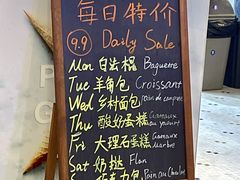 每日特价
9.9 Daily Sale
Mon 白法棍 Baguette
Tue 羊角包 Croissant
Wed 乡村面包 Pain de campagne
Thu 酸奶蛋糕 Gateaux au yaourt
Fri 大理石蛋糕 Gateaux marbre
Sat 奶挞 Flan
力包 Pain au Chocolat